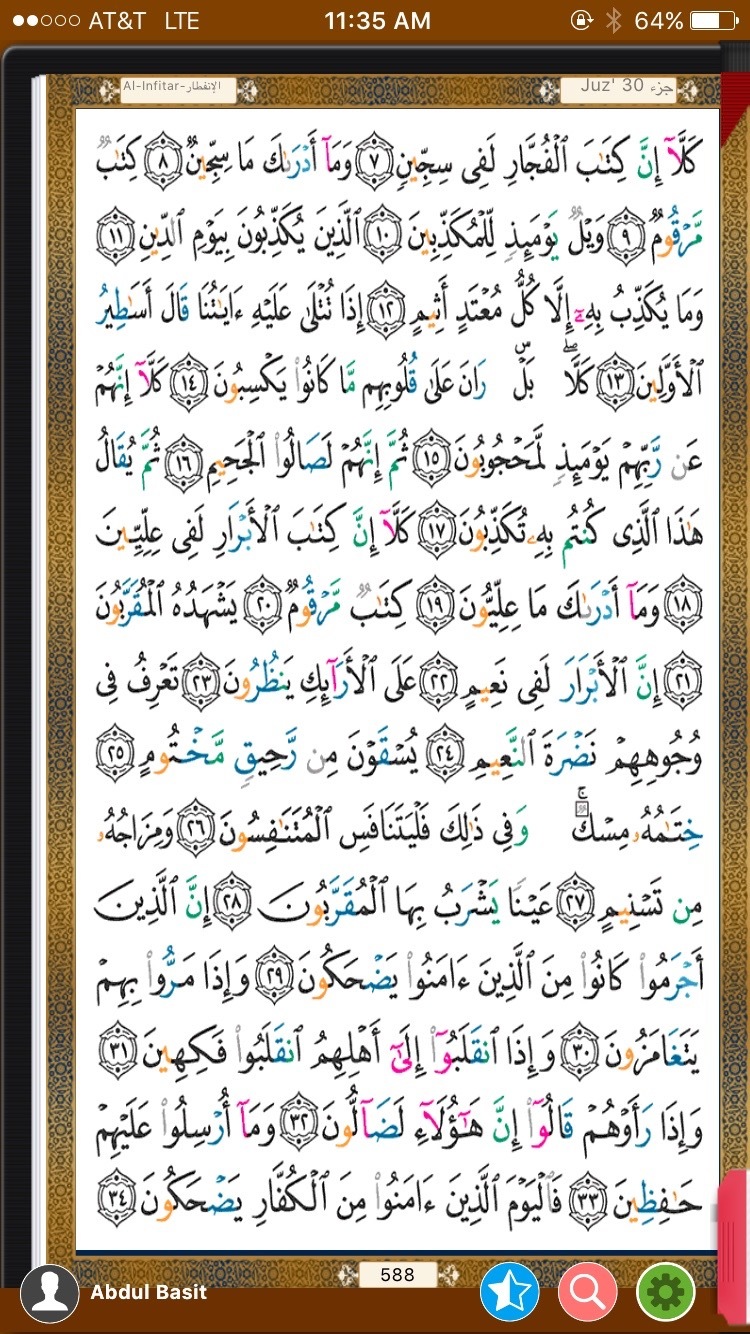 AT&T LTE 11:35 AM 64%
Al-Infitar-الإنفطار Juz' 30 جزء
كَلَّآ إِنَّ كِتَٰبَ ٱلْفُجَّارِ لَفِى سِجِّينٍ ٧ وَمَآ أَدْرَىٰكَ مَا سِجِّينٌ ٨ كِتَٰبٌ
مَّرْقُومٌ ٩ وَيْلٌ يَوْمَئِذٍ لِّلْمُكَذِّبِينَ ١٠ ٱلَّذِينَ يُكَذِّبُونَ بِيَوْمِ ٱلدِّينِ ١١
وَمَا يُكَذِّبُ بِهِۦٓ إِلَّا كُلُّ مُعْتَدٍ أَثِيمٍ ١٢ إِذَا تُتْلَىٰ عَلَيْهِ ءَايَٰتُنَا قَالَ أَسَٰطِيرُ
ٱلْأَوَّلِينَ ١٣ كَلَّا ۖ بَلْ ۜ رَانَ عَلَىٰ قُلُوبِهِم مَّا كَانُوا۟ يَكْسِبُونَ ١٤ كَلَّآ إِنَّهُمْ
عَن رَّبِّهِمْ يَوْمَئِذٍ لَّمَحْجُوبُونَ ١٥ ثُمَّ إِنَّهُمْ لَصَالُوا۟ ٱلْجَحِيمِ ١٦ ثُمَّ يُقَالُ
هَٰذَا ٱلَّذِى كُنتُم بِهِۦ تُكَذِّبُونَ ١٧ كَلَّآ إِنَّ كِتَٰبَ ٱلْأَبْرَارِ لَفِى عِلِّيِّينَ
١٨ وَمَآ أَدْرَىٰكَ مَا عِلِّيُّونَ ١٩ كِتَٰبٌ مَّرْقُومٌ ٢٠ يَشْهَدُهُ ٱلْمُقَرَّبُونَ
٢١ إِنَّ ٱلْأَبْرَارَ لَفِى نَعِيمٍ ٢٢ عَلَى ٱلْأَرَآئِكِ يَنظُرُونَ ٢٣ تَعْرِفُ فِى
وُجُوهِهِمْ نَضْرَةَ ٱلنَّعِيمِ ٢٤ يُسْقَوْنَ مِن رَّحِيقٍ مَّخْتُومٍ ٢٥
خِتَٰمُهُۥ مِسْكٌ ۚ وَفِى ذَٰلِكَ فَلْيَتَنَافَسِ ٱلْمُتَنَٰفِسُونَ ٢٦ وَمِزَاجُهُۥ
مِن تَسْنِيمٍ ٢٧ عَيْنًا يَشْرَبُ بِهَا ٱلْمُقَرَّبُونَ ٢٨ إِنَّ ٱلَّذِينَ
أَجْرَمُوا۟ كَانُوا۟ مِنَ ٱلَّذِينَ ءَامَنُوا۟ يَضْحَكُونَ ٢٩ وَإِذَا مَرُّوا۟ بِهِمْ
يَتَغَامَزُونَ ٣٠ وَإِذَا ٱنقَلَبُوٓا۟ إِلَىٰٓ أَهْلِهِمُ ٱنقَلَبُوا۟ فَكِهِينَ ٣١
وَإِذَا رَأَوْهُمْ قَالُوٓا۟ إِنَّ هَٰٓؤُلَآءِ لَضَآلُّونَ ٣٢ وَمَآ أُرْسِلُوا۟ عَلَيْهِمْ
حَٰفِظِينَ ٣٣ فَٱلْيَوْمَ ٱلَّذِينَ ءَامَنُوا۟ مِنَ ٱلْكُفَّارِ يَضْحَكُونَ ٣٤
588
Abdul Basit